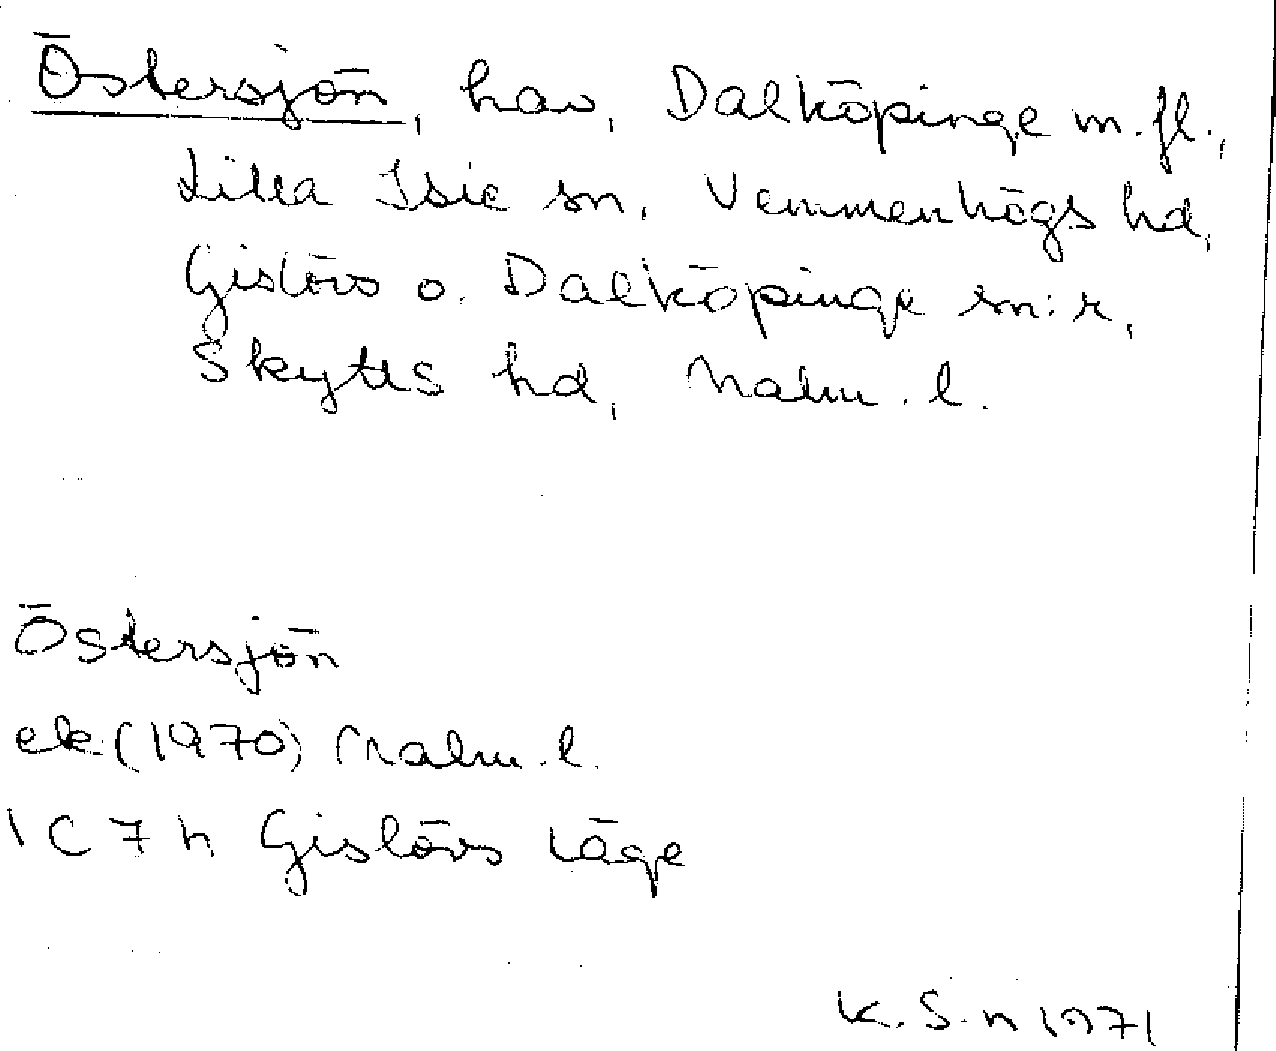 Östersjön, hav, Dalköpinge m.fl.,
Lilla Isie sn, Vemmenhögs hd,
Gislövs o. Dalköpinge sn:r,
Skytts hd, Malm. l.
Östersjön
ek (1970) Malm. l.
1C7h Gislövs läge
K. S-n 1971